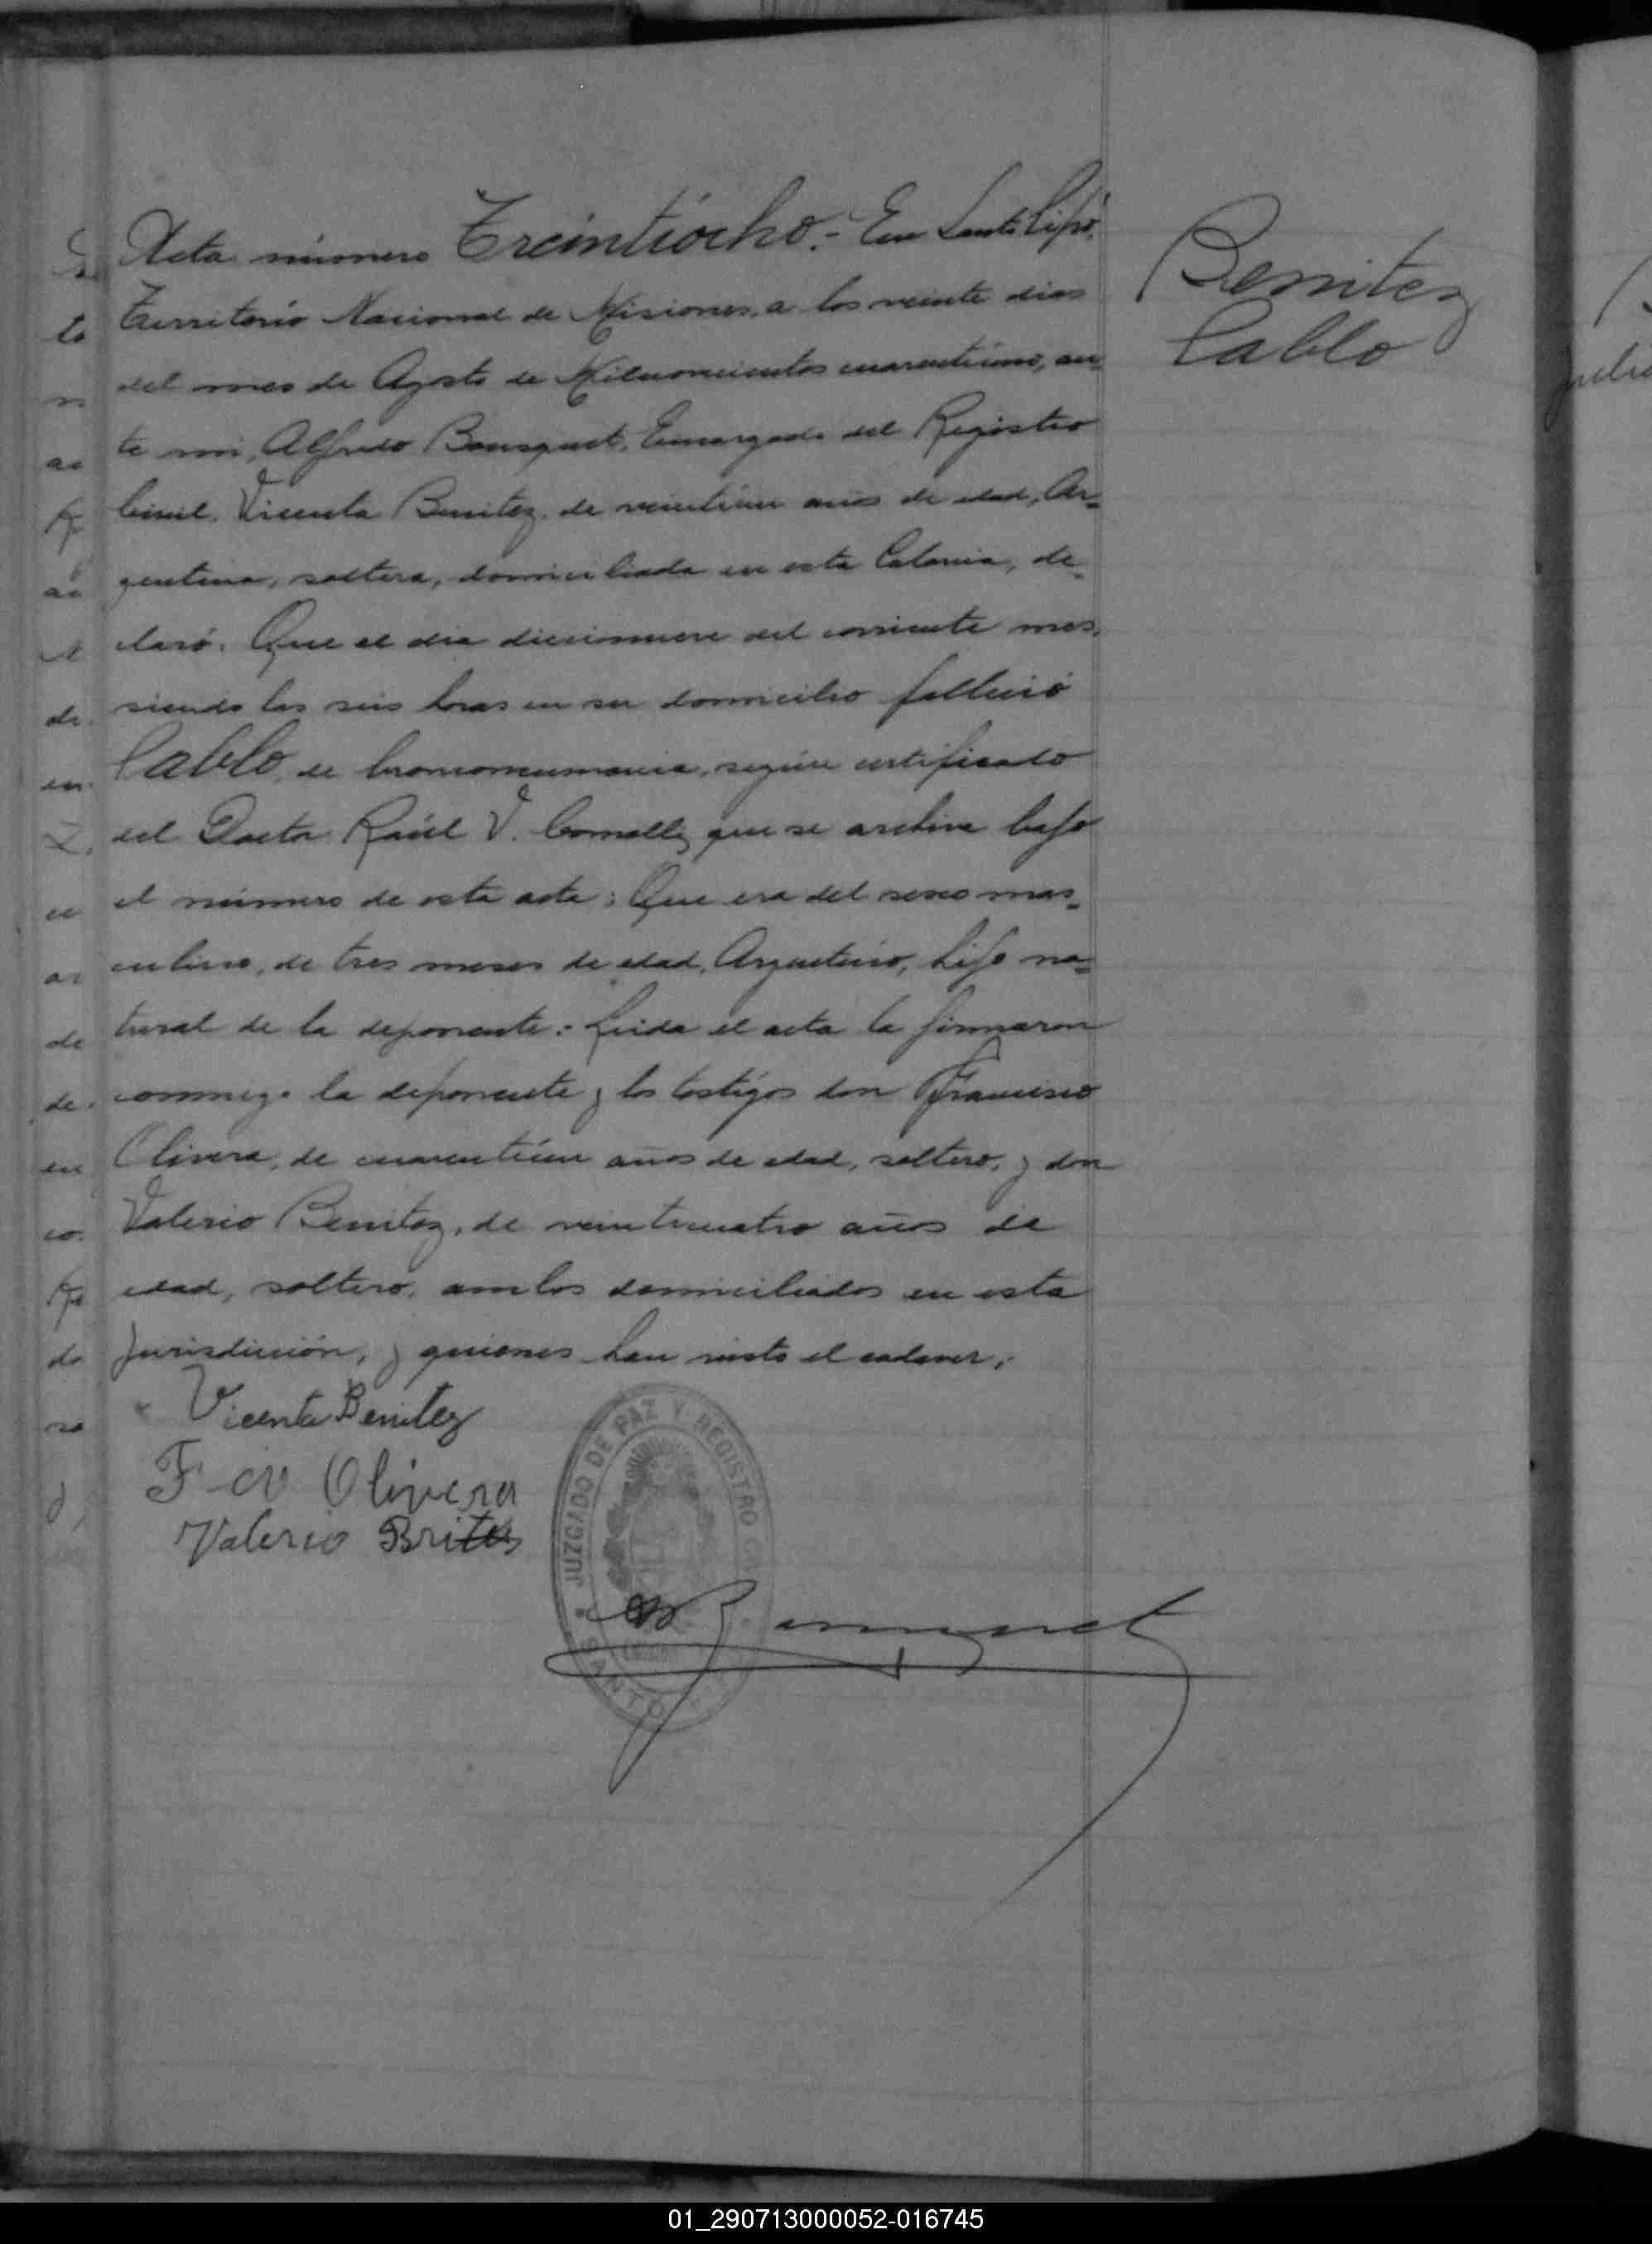 Acta número Treintiocho.- En Santo Pipó,
Territorio Nacional de Misiones, a los veinte dias
del mes de Agosto de Milnovecientos cuarentiuno, an-
te mi, Alfredo Bousquet, Encargado del Registro
Civil, Vicenta Benitez, de veintiún años de edad, Ar-
gentina, soltera, domiciliada en esta Colonia, de-
claró: Que el dia diecinueve del corriente mes,
siendo las seis horas en su domicilio falleció
Pablo, de bronconeumonia, según certificado
del Doctor Raúl V. que se archiva bajo
el número de esta acta: Que era del sexo mas-
culino, de tres meses de edad, Argentino, hijo na-
tural de la deponente: Leida el acta la firmaron
conmigo la deponente y los testigos don Francisco
Olivera, de cuarentiún años de edad, soltero, y don
Valerio Benitez, de veinticuatro años de
edad, soltero, ambos domiciliados en esta
Jurisdicción, y quienes han visto el cadaver.
Benitez
Pablo
Vicenta Benitez
F co Olivera
Valerio Brites
JUZGADO DE PAZ Y REGISTRO
SANTO
Bousquet
01_290713000052-016745